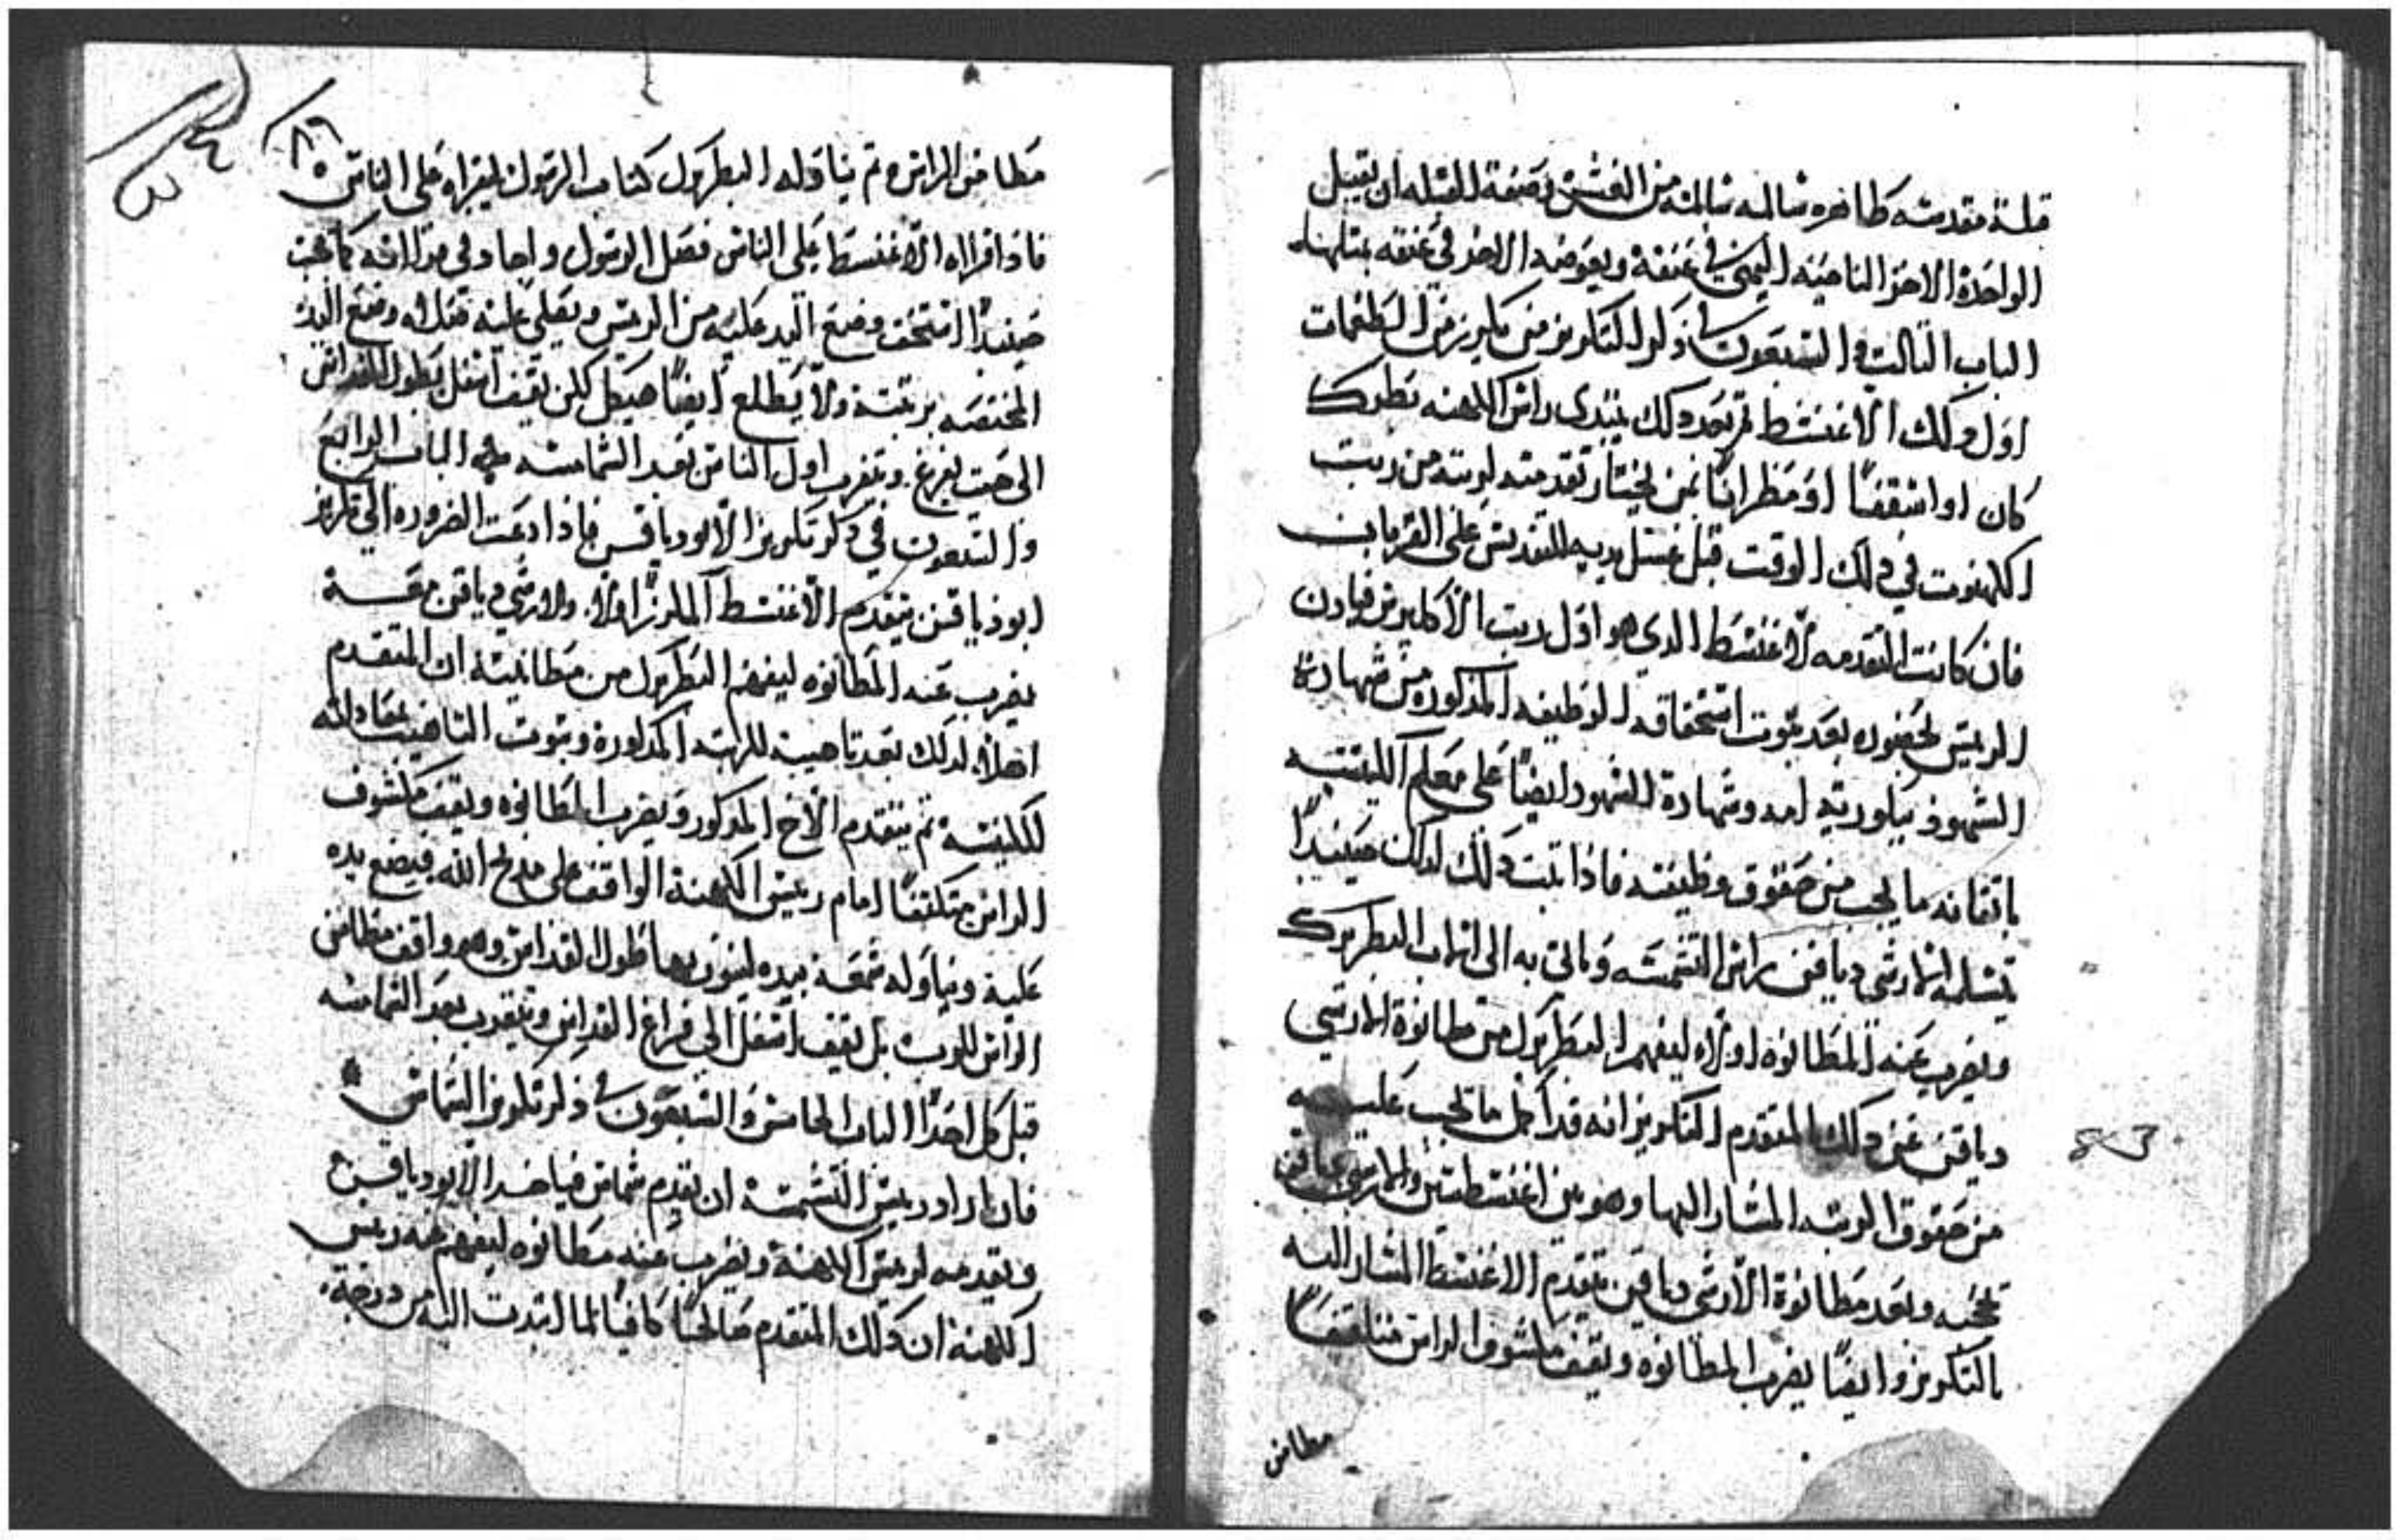 قبلة مقدسه طاهره سالمه من الغش وصفة القبله ان يقبل
الواحد الاخر الناحيه اليمني في عنقه ويعوضه الاخر في عنقه بمثلها
الباب التالت والسبعون في ذكر التكريز من يكرز من الطغمات
اول ذلك الاغنسط تم بعد ذلك يبتدي راس الكهنه بطرك
كان او اسقفًا او مطرانًا بمن يختار تقدمته لرتبه من رتب
الكهنوت في ذلك الوقت قبل غسل يديه للتقديس على القربان
فان كانت التقدمه لاغنسط الدي هو اول رتب الاكليرس فيادن
الريس بحضوره بعد تبوت استحقاقه الوظيفه المذكوره من شهادة
الشهود وشهادة الشهود ايضًا على معلم الكنيسه
باتقانه ما يجب من حقوق وظيفته فاذا تبت ذلك لذلك حينيدًا
يتسلمه الارشي دياقن راس الشمسه وياتي به الى البطريرك
ويضرب عنه المطانوه اولاً ليفهم البطريرك من مطانوة الارشي
دياقن عن ذلك المتقدم التكريز انه قد اكمل ما يجب عليه
من حقوق الرتبه المشار اليها وهو بين اغنسطسين والارشي دياقن
وبعد مطانوة الارشي دياقن يتقدم الاغنسط المشار اليه
بالتكريز وايضًا يضرب المطانوه ويقف مكشوف الراس
مطامن
٨٦
مطامن الراس تم يناوله البطريرك كتاب الرسول ليقراه على الناس
فاذا قراه الاغنسط على الناس فصل الرسول واجاد في قراته كما يجب
حينيدًا استحق وضع اليد عليه من الريس ويصلي عليه وضع اليد
المختصه برتبته ولا يطلع ايضًا هيكل لكن يقف اسفل بطول القداس
الى حيت يفرغ ويتقرب اول الناس بعد الشمامسه الباب الرابع
والسبعون في ذكر تكريز الابودياقن فاذا دعت الضروره الي تكريز
ابودياقن يتقدم الاغنسط المكرز اولاً والارشي دياقن معه
يضرب عنه المطانوه ليفهم البطريرك من مطانيته ان المتقدم
اهلاً لذلك بعد تاهيبه للرتبه المذكورة وتبوت التاهيب
للكنيسه تم يتقدم الاخ المذكور ويضرب المطانوه ويقف مكشوف
الراس متكتفًا امام رييس الكهنة الواقف على مذبح الله فيضع يده
عليه ويناوله شمعه بيده طول القداس وهو واقف مطامن
الراس للرب بل يقف اسفل الي فراغ القداس ويتقرب بعد الشمامسه
قبل كل احدًا الباب الخامس والسبعون في ذكر تكريز الشماس
فان اراد رييس الشمسه ان يقدم شماس فياخد الابودياقن
ويقدمه لرييس الكهنة ويضرب عنه مطانوه ليفهم رييس
الكهنة ان ذلك المتقدم صالحًا كافيًا لما انتدب اليه من درجة